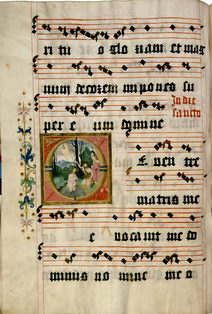 ri tu o glo riam et mag
num decorem impones su
In die
sancto
per e um domine
E ven tre
matris me
e vocavit me do
minus no mine me o